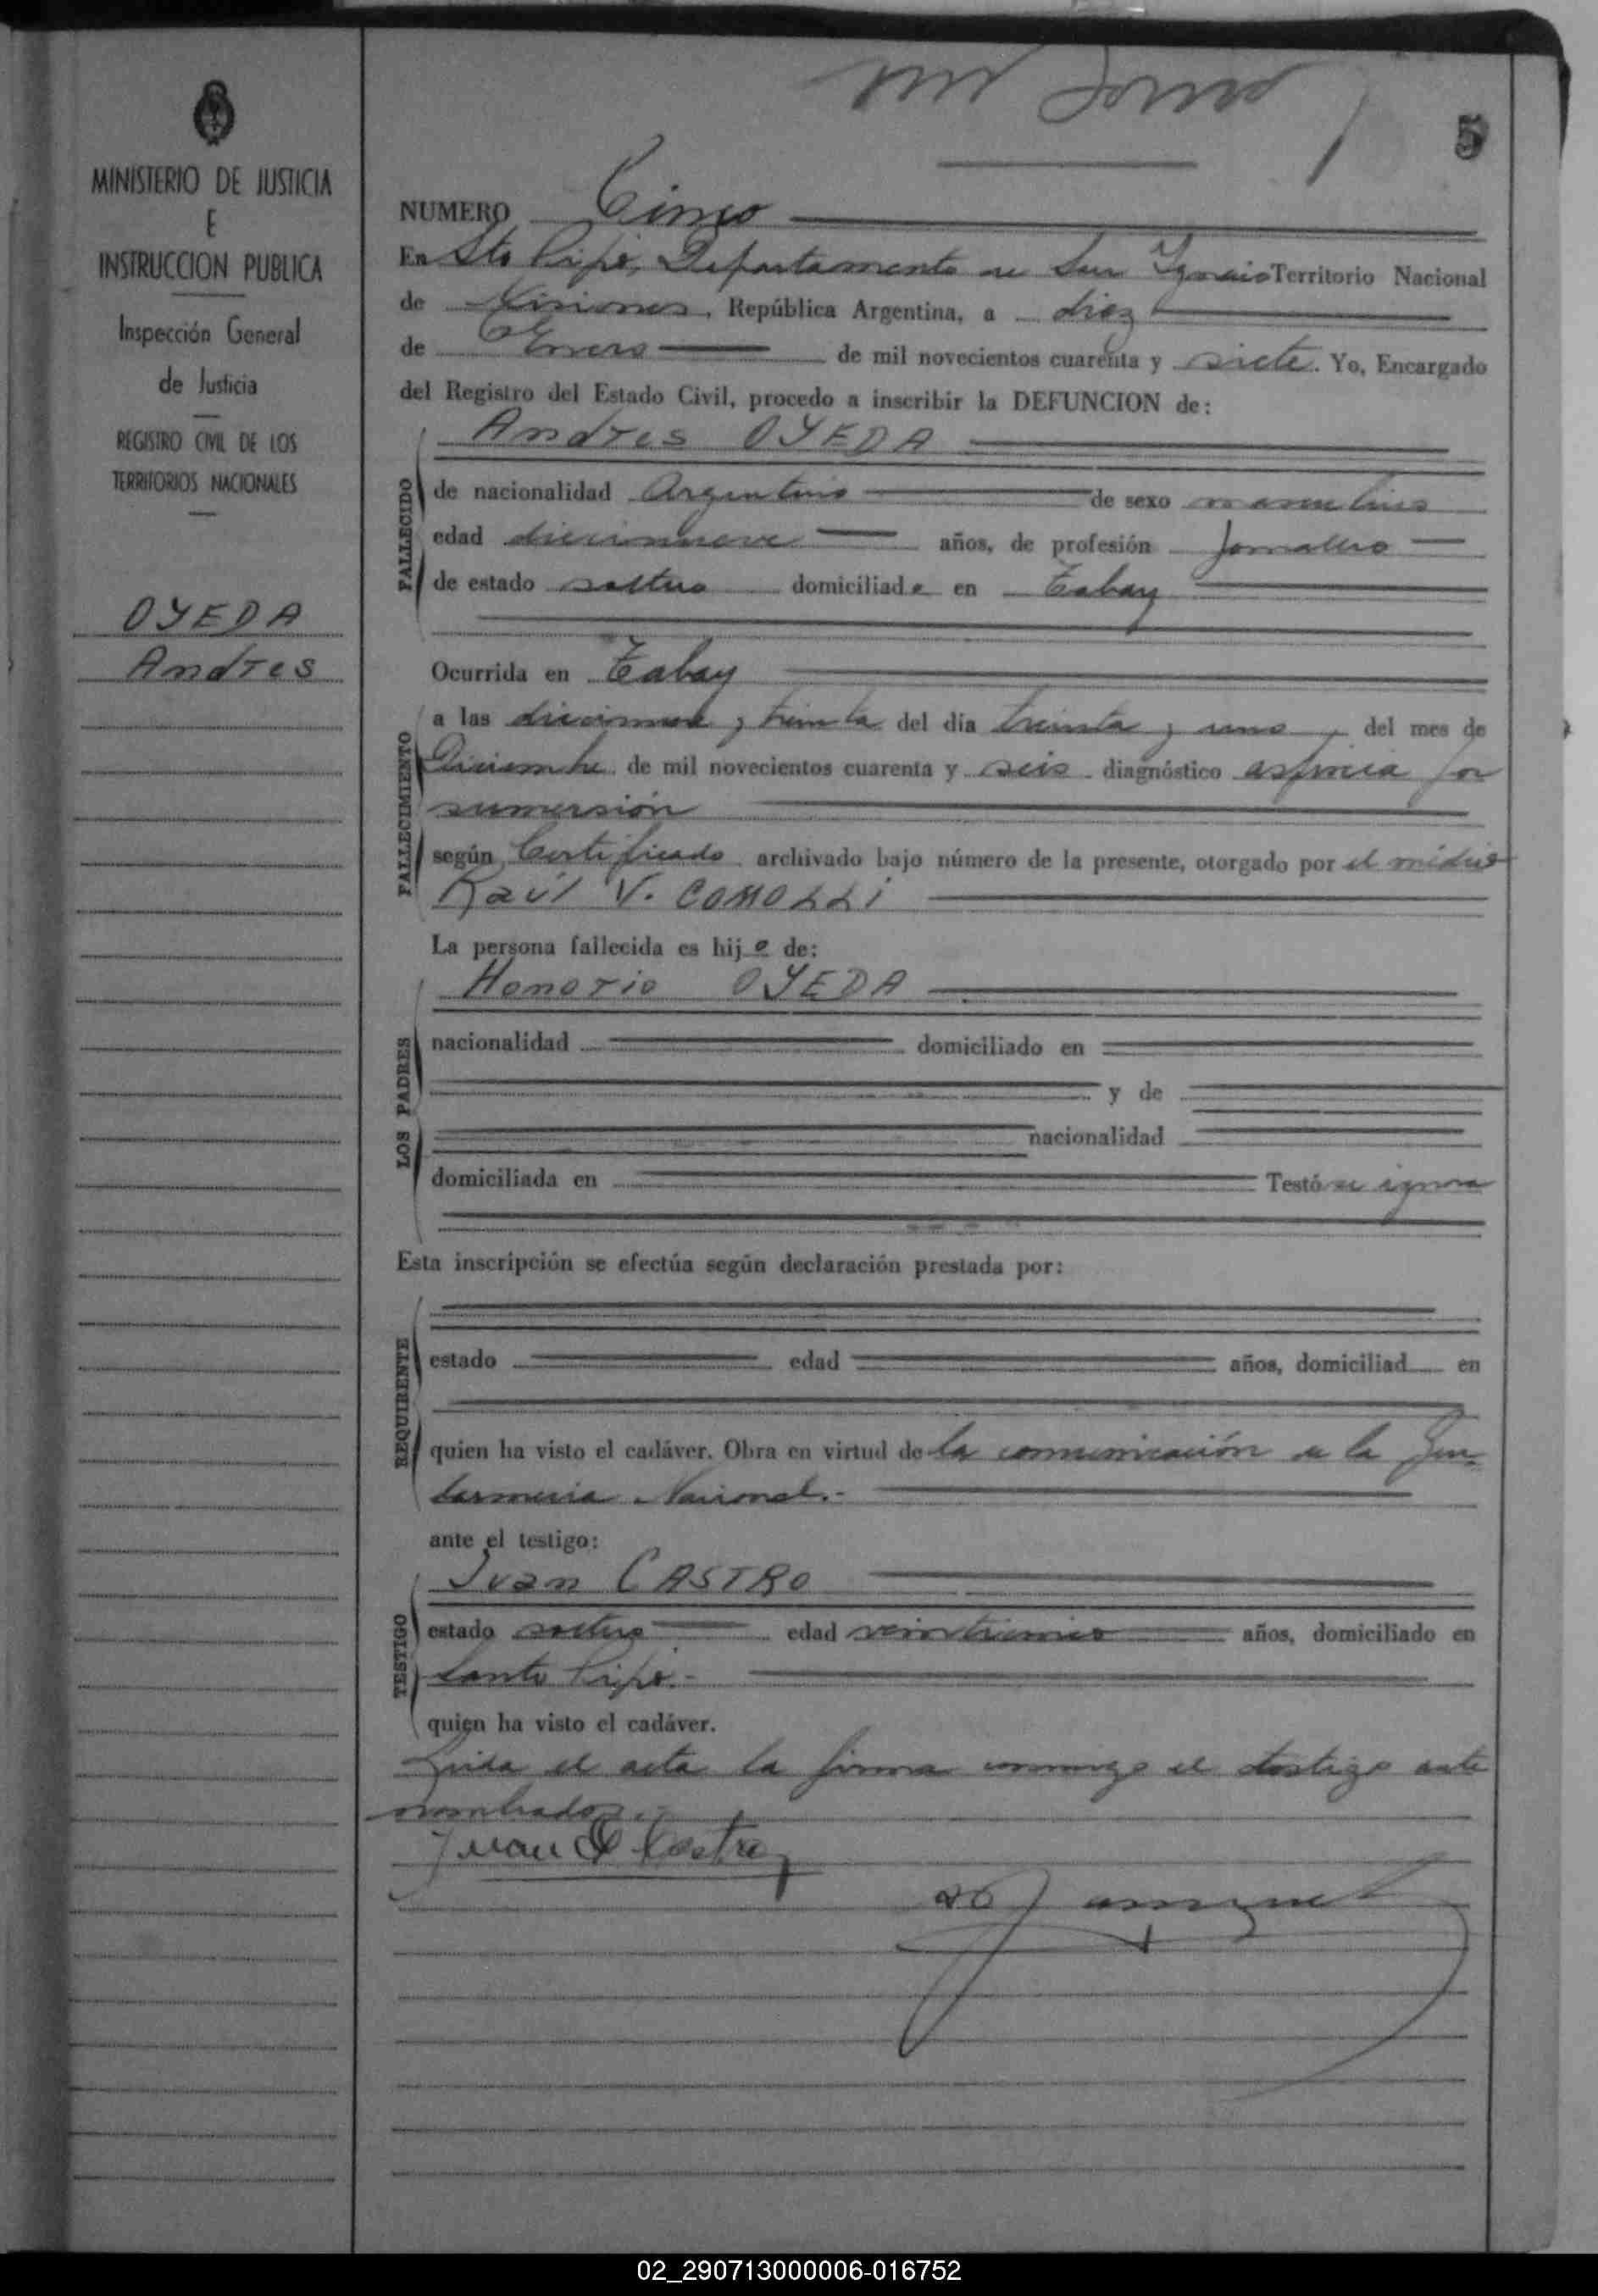 5
MINISTERIO DE JUSTICIA
E
INSTRUCCION PUBLICA
Inspección General
de Justicia
REGISTRO CIVIL DE LOS
TERRITORIOS NACIONALES
OJEDA
Andres
NUMERO Cinco
En Sto Pipó, Departamento de San Ignacio Territorio Nacional
de Misiones, República Argentina, a diez
de Enero de mil novecientos cuarenta y siete. Yo, Encargado
del Registro del Estado Civil, procedo a inscribir la DEFUNCION de:
Andres OJEDA
FALLECIDO
de nacionalidad Argentino de sexo masculino
edad diecinueve años, de profesión Jornalero
de estado soltero domiciliado en Tabay
FALLECIMIENTO
Ocurrida en Tabay
a las diecinueve y treinta del día treinta y uno del mes de
Diciembre de mil novecientos cuarenta y seis diagnóstico asfixia por
sumersión
según Certificado archivado bajo número de la presente, otorgado por el médico
Raúl V. COMOLLI
La persona fallecida es hijo de:
LOS PADRES
Honorio OJEDA
nacionalidad domiciliado en
y de
nacionalidad
domiciliada en Testó se ignora
Esta inscripción se efectúa según declaración prestada por:
REQUIRENTE
estado edad años, domiciliad en
quien ha visto el cadáver. Obra en virtud de la comunicación de la Gen-
darmeria Nacional.-
ante el testigo:
TESTIGO
Juan CASTRO
estado soltero edad veinticinco años, domiciliado en
Santo Pipó.-
quien ha visto el cadáver.
Leida el acta la firma conmigo el testigo ante
nombrado.-
Juan Castro
02_290713000006-016752